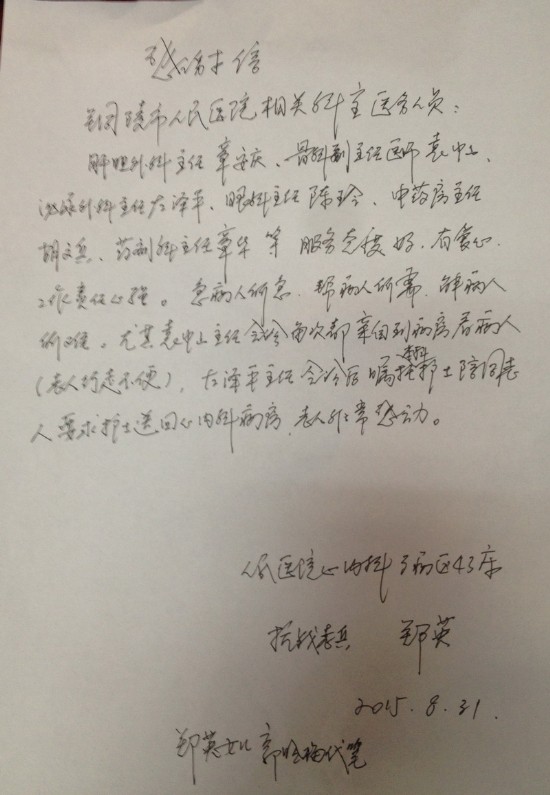 感谢信
铜陵市人民医院相关科室医务人员：
肝胆外科主任章安庆、骨科副主任医师袁中山、
泌尿外科主任左泽平、眼科主任陈玲、中药房主任
胡文兵、药剂科主任章华等服务态度好、有爱心、
工作责任心强。急病人所急、帮病人所需、解病人
所难。尤其袁中山主任会诊两次都亲自到病房看病人
（老人行走不便），左泽平主任会诊后嘱本科护士陪同老
人要求护士送回心内科病房，老人非常感动。
人民医院心内科 病区43床
抗战老兵 郑英
2015.8.31.
郑英女儿 代笔